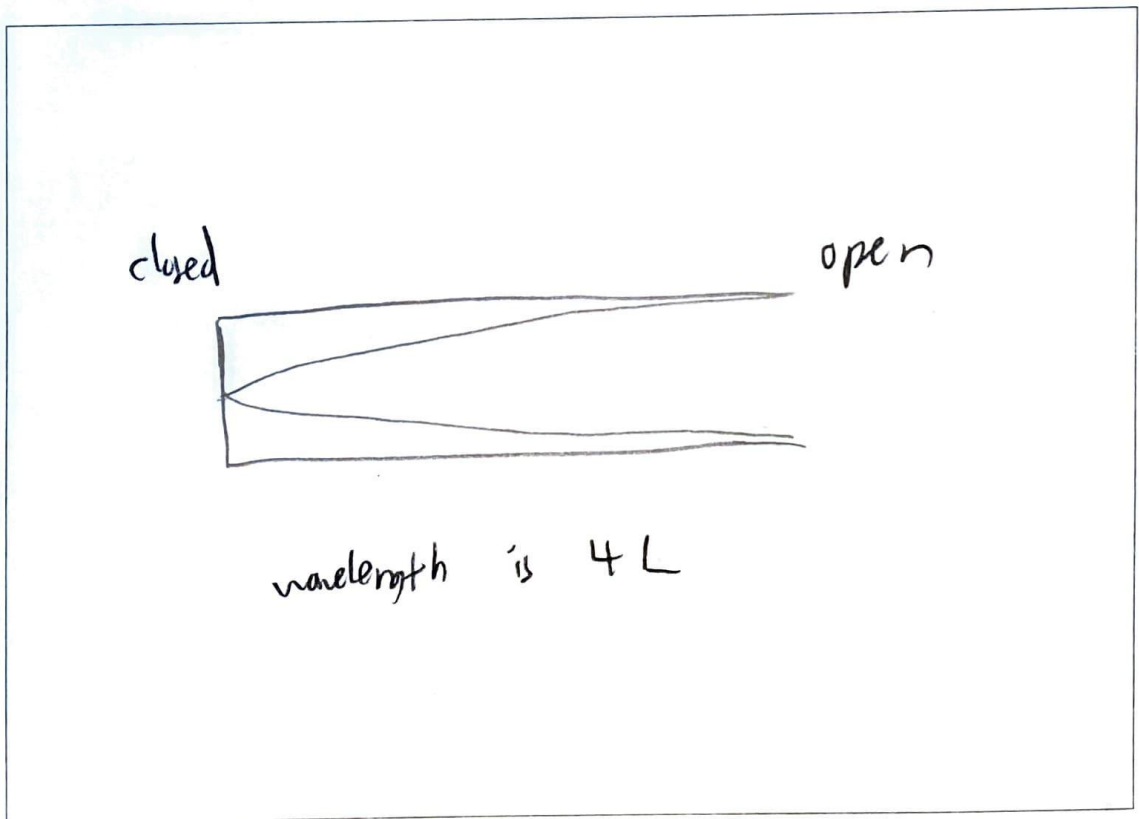 closed
open
wavelength is 4 L